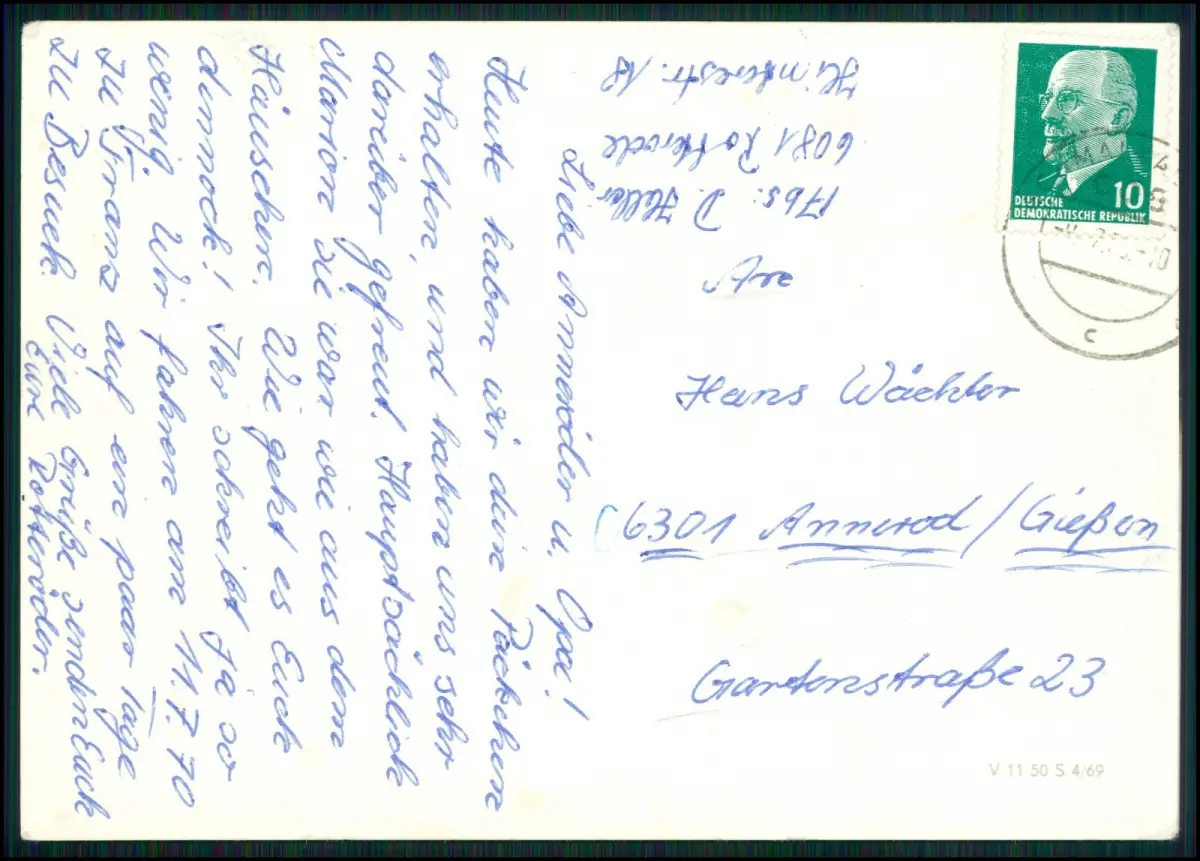 Liebe Anneröder u. Opa!
Heute haben wir dein Päckchen
erhalten, und haben uns sehr
darüber gefreut. Hauptsächlich
Marion sie war wie aus dem
Häuschen. Wie geht es Euch
dennoch! Ihr schreibt ja so
wenig. Wir fahren am 11.7.70
zu Franz auf ein paar Tage
zu Besuch. Viele Grüße senden Euch
Eure Rotteröder.
D. Haller
6081 Rotterode
Hinterestr. 18
DEUTSCHE
DEMOKRATISCHE REPUBLIK
10
c
Hans Wächter
6301 Annerod/Gießen
Gartenstraße 23
V 11 50 S 4/69